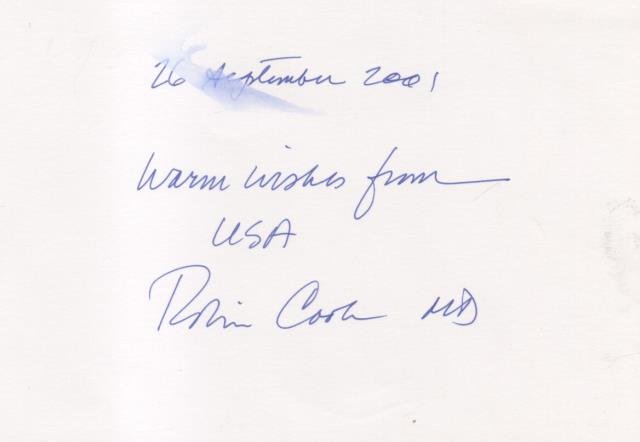 26 September 2001
Warm wishes from
USA
Robin Cook MD